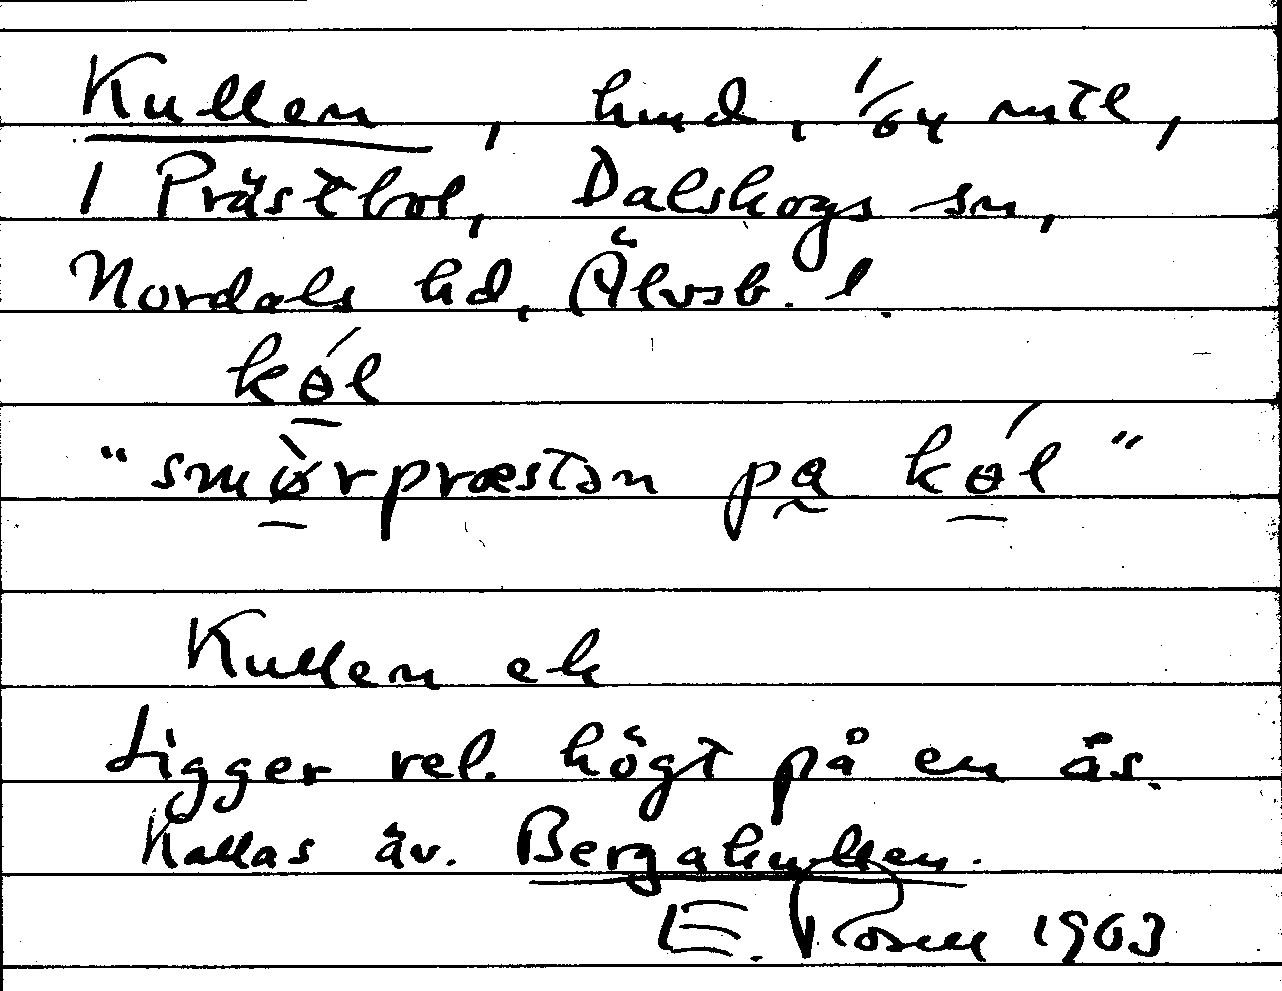 Kullen, hmd, 1/64 mtl,
1 Prästbol, Dalskogs sn,
Nordals hd, Älvsb. l.
kɵ́l
"smø̀rpræstən på kɵ́l"
Kullen ek
Ligger rel. högt på en ås.
Kallas äv. Bergakullen.
E. Rosell 1963